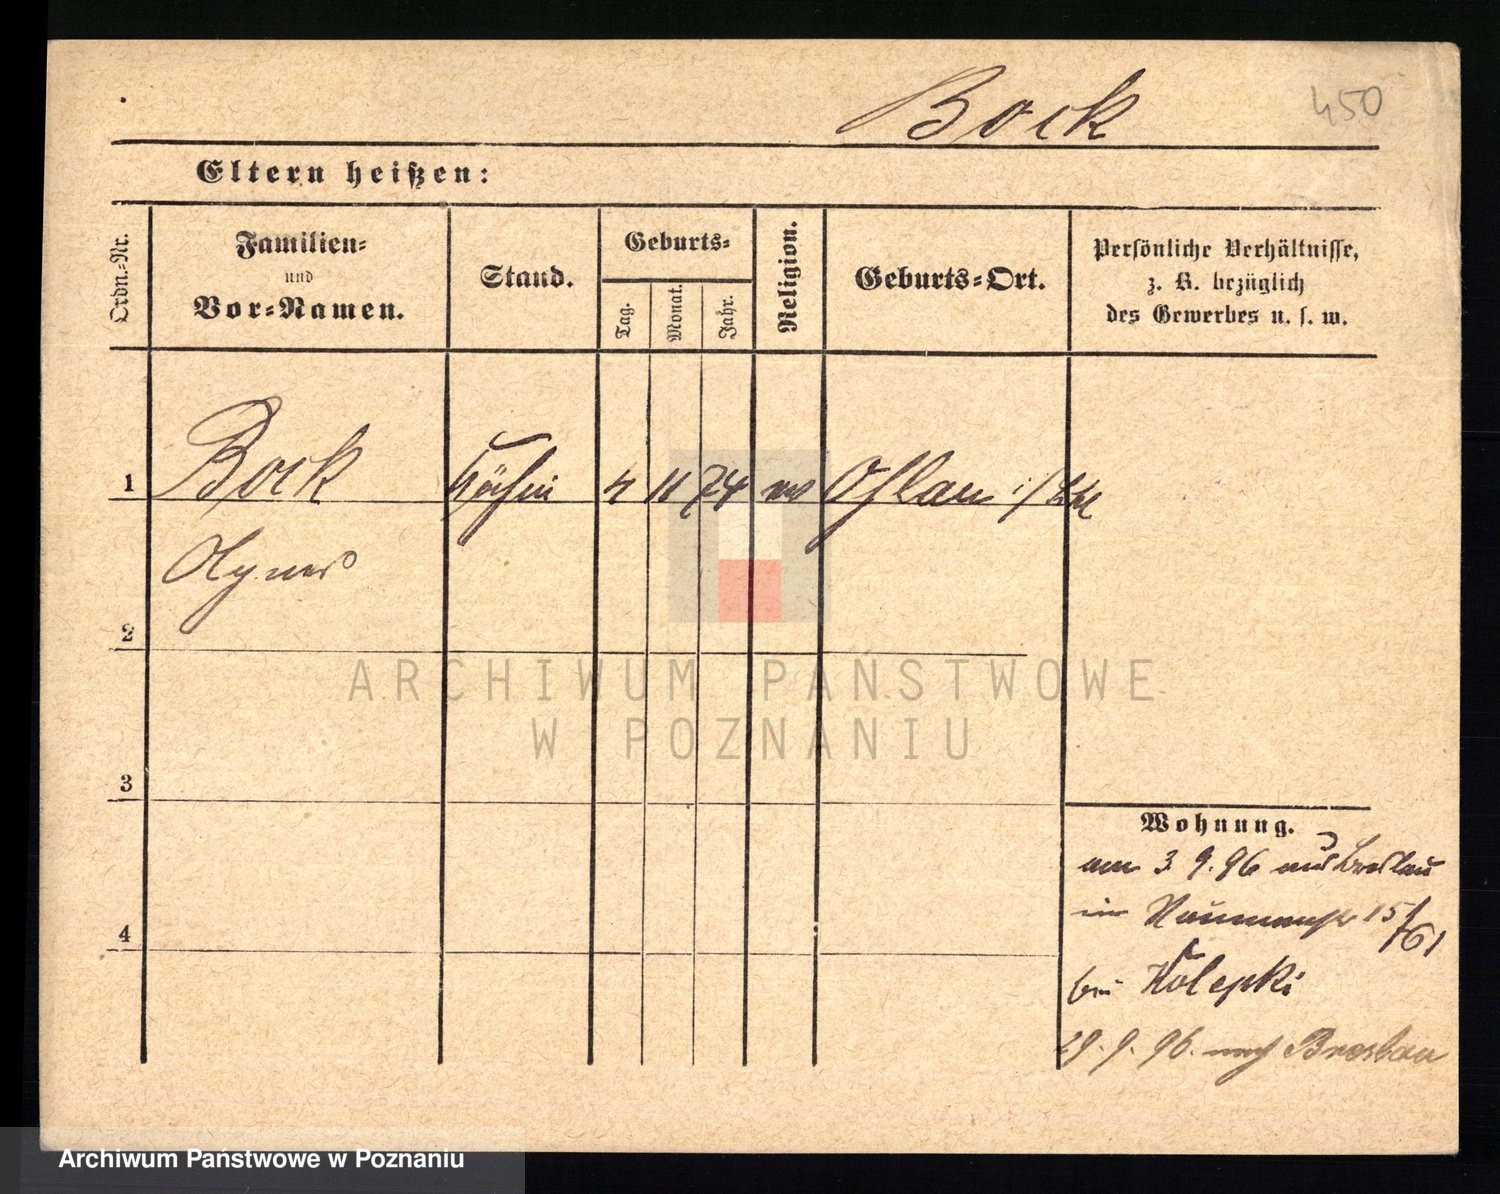 Bock 450
Eltern heißen:
Ordn.-Nr.
Familien-
und
Vor-Namen.
Stand.
Geburts-
Tag.
Monat.
Jahr.
Religion.
Geburts-Ort.
Persönliche Verhältnisse,
z. B. bezüglich
des Gewerbes u. s. w.
1 Bock Köchin 4 11 74 ev Ohlau i/
Agnes
2
ARCHIWUM PAŃSTWOWE
W POZNANIU
3
Wohnung.
am 3 9. 96 aus Breslau
in Naumannstr 15/
/61
bei
29. 9. 96. nach Breslau
4
Archiwum Państwowe w Poznaniu